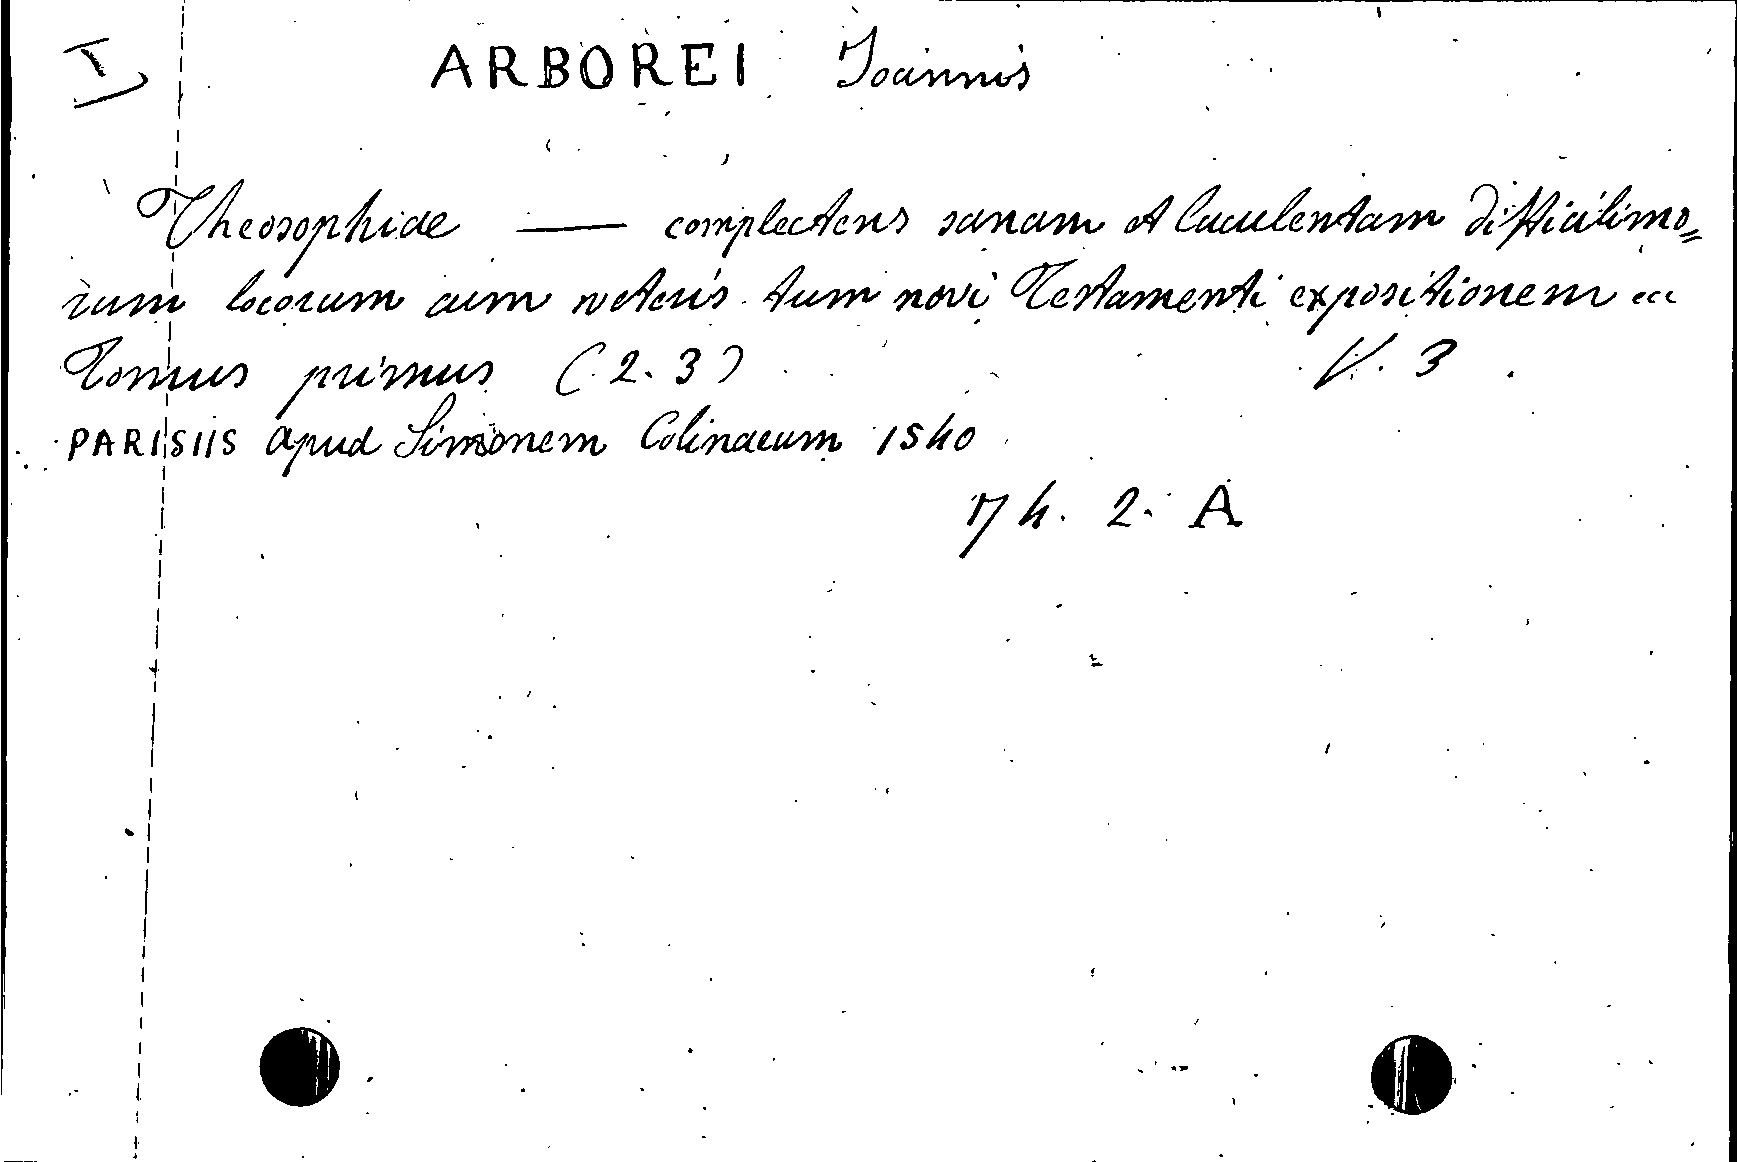 I
ARBOREI Joannis
Theosophiae —— complectens sanam et luculentam difficilimo=
rum locorum cum veteris tum novi Testamenti expositionem ...
Tomus primus (2.3) V. 3
PARISIIS apud Simonem Colinaeum 1540
74. 2. A